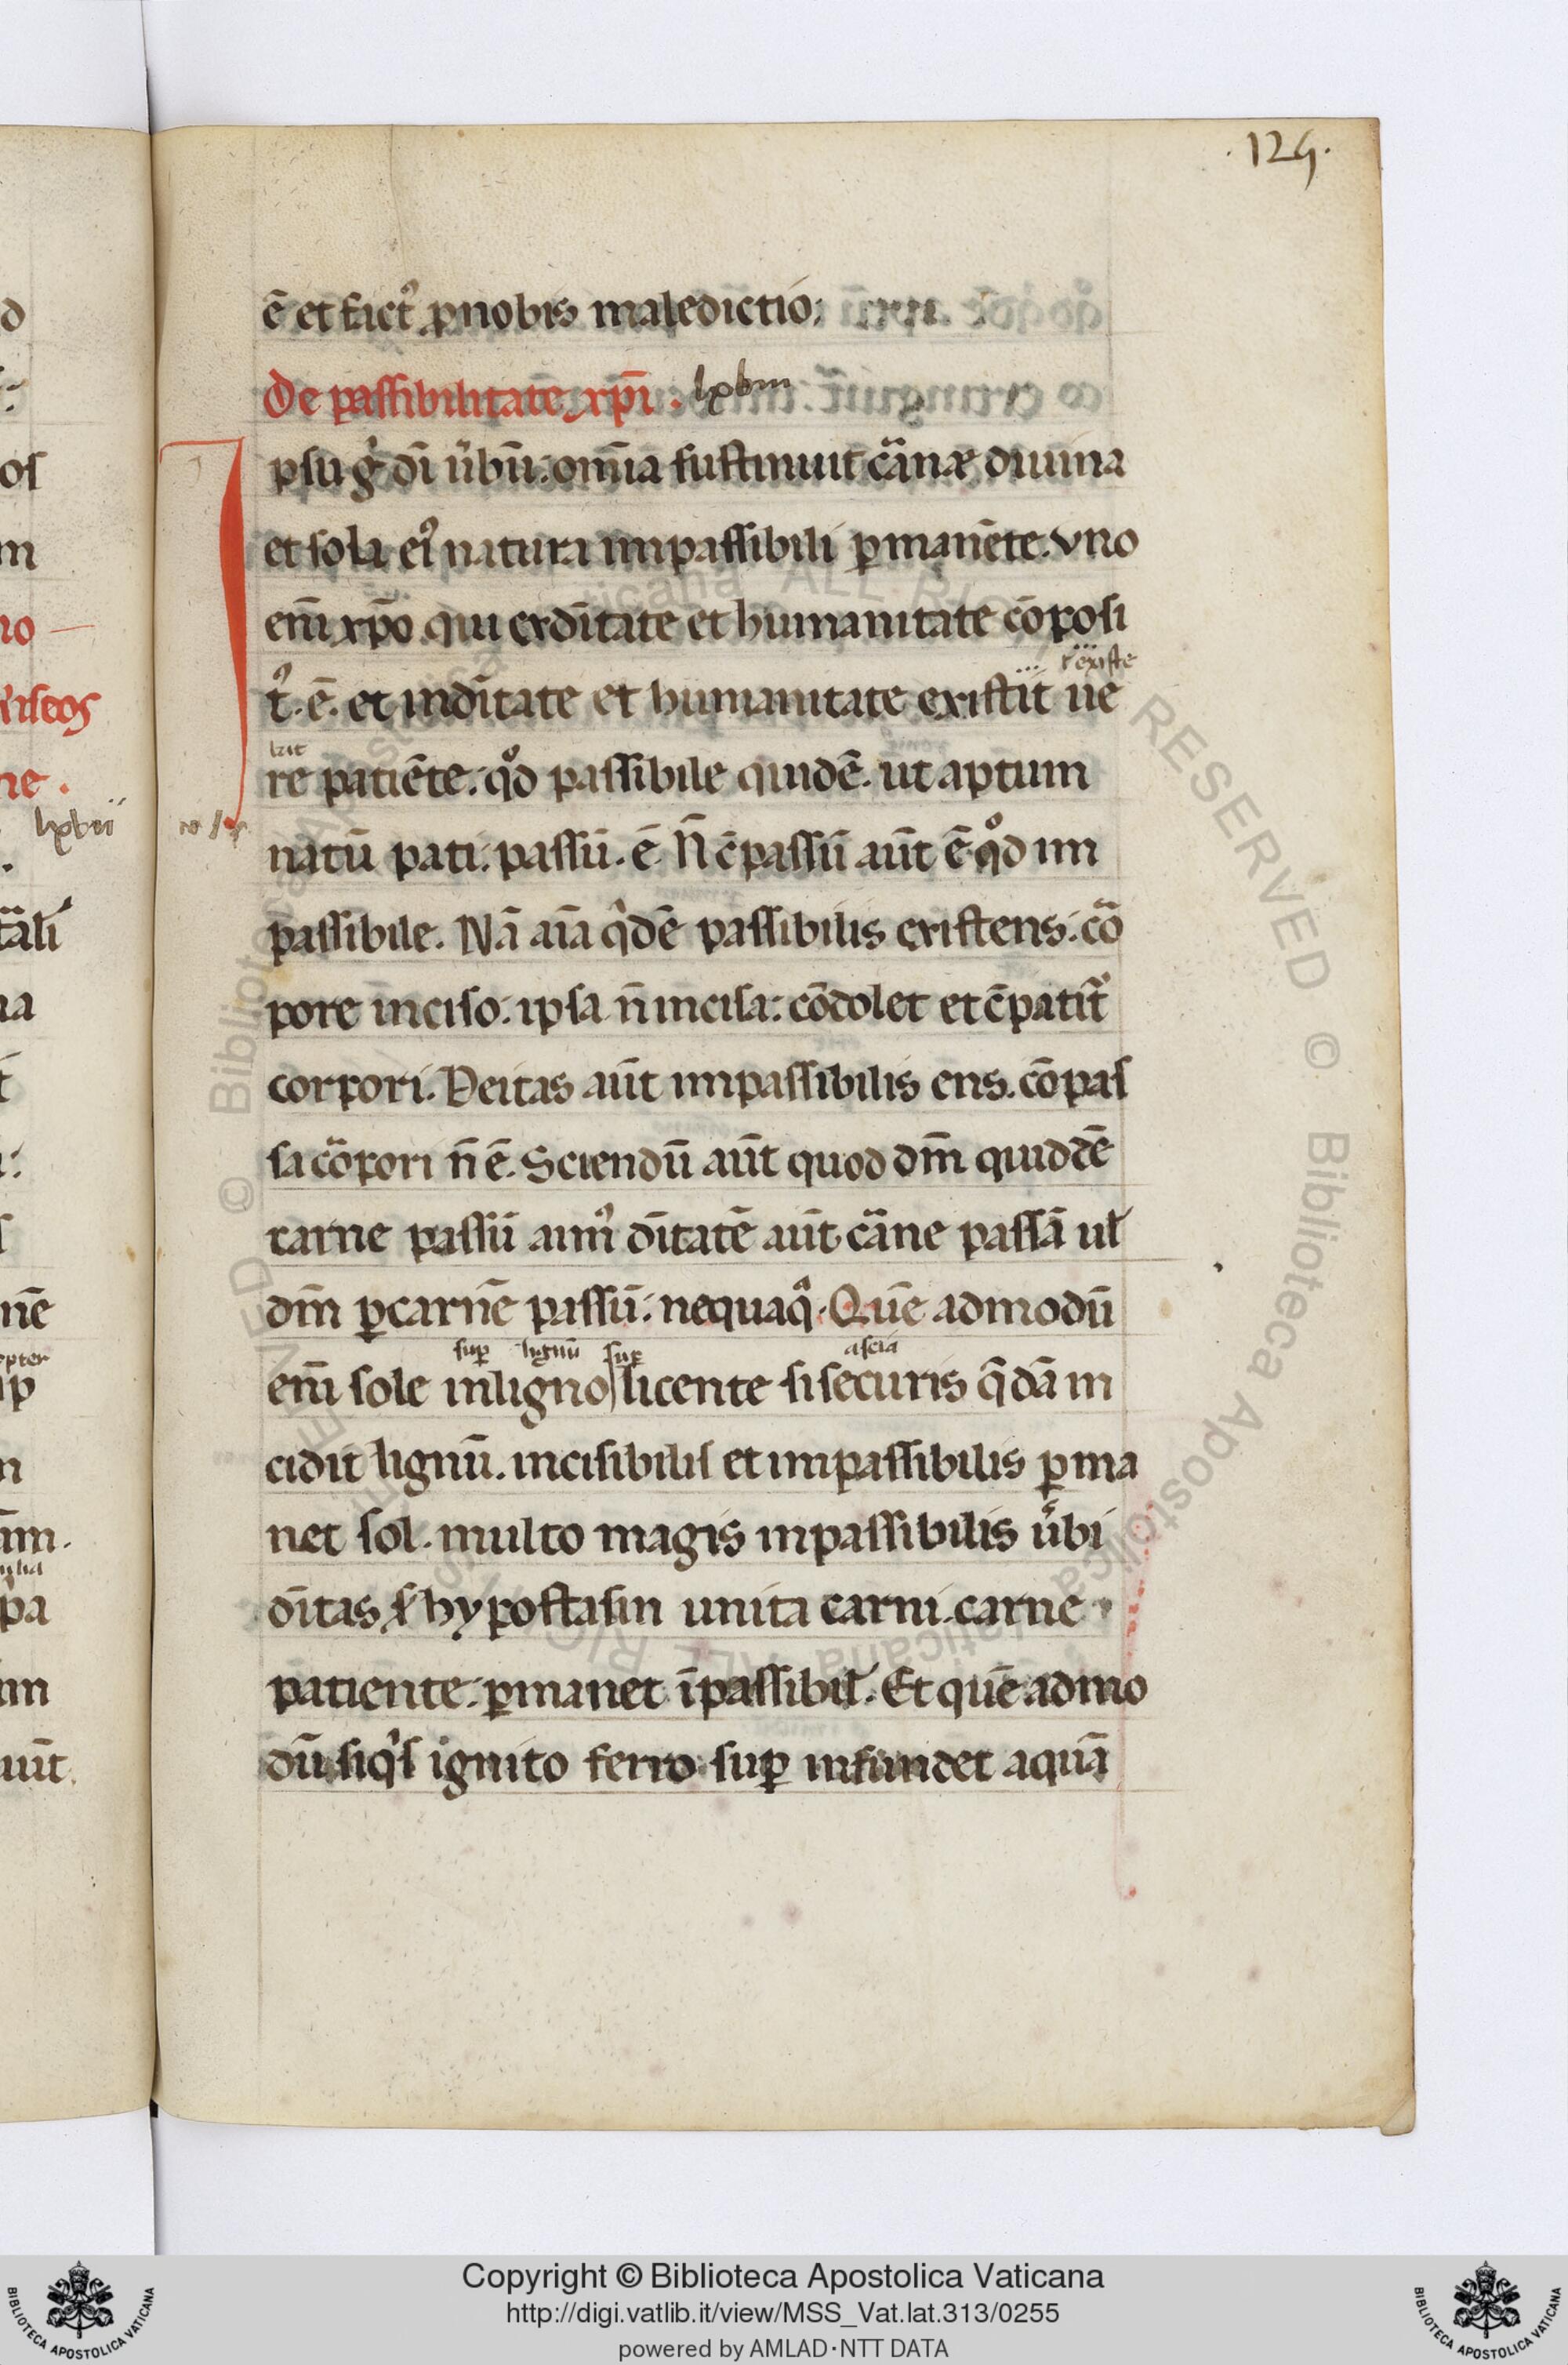 .129.
ē et fact᾽ ꝓ nobis maledictio;
De passibilitate xp̄i . lxbiii
Ipsū g̊ dī ũbū. om̄ia sustinuit cãne diuina
et sola ei᾽ natura impassibili ꝑmanēte. vno
em̄ xp̄o qui ex dīitate et humanitate cōposi
t᾽ .ē. et in dīitate et humanitate existit ue
existe
lut
re patiēte. qᵒd passibile quidē. ut aptum
natū pati. passū .ē. N̄ c̄passū aūt ē qᵒd im
passibile. Nā aīa qⁱdē passibilis existens. cõ
pore inciso. ipsa n̄ incisa: cōdolet et c̄patit᷑
corpori. Deitas aūt impassibilis ens. cōpas
sa cõpori n̄ ē. Sciendū aūt quod dm̄ quiddē
carne passū aim᾽ dīitatē aūt cãne passā ul̄
dm̄ ꝑ carnē passū. nequaqᵃ. Quē admodū
sup lignū sup ascia
em̄ sole in ligno licente si securis q̄dā in
cidit lignū. incisibilis et impassibilis ꝑma
net sol. multo magis inpassibilis ũbi
dīitas s̄ hypostasin unita carni. carne
patiente. ꝑmanet īpassibil̄. Et quē admo
dū si qⁱs ignito ferro suꝑ infundet aquā
lxbii
Copyright © Biblioteca Apostolica Vaticana
http://digi.vatlib.it/view/MSS_Vat.lat.313/0255
powered by AMLAD·NTT DATA